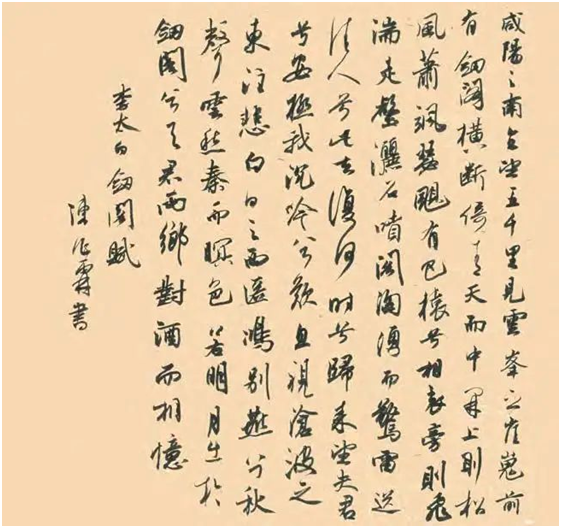 咸陽之南直望五千里見雲峯之崔嵬前
有劍閣橫斷倚青天而中開上則松
風蕭颯瑟颶有巴猿兮相哀旁則飛
湍走壑灑石噴閣洶湧而驚雷送
佳人兮此去復何時兮歸來望夫君
兮安極我沉吟兮歎息視滄波之
東注悲白日之西匿鴻別燕兮秋
聲雲愁秦而暝色若明月出於
劍閣兮与君兩鄉對酒而相憶
李太白劍閣賦
陳作霖書